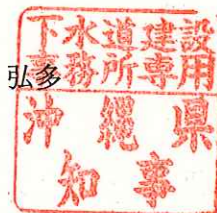 下水道建設
事務所専用
弘多
沖繩県
知事